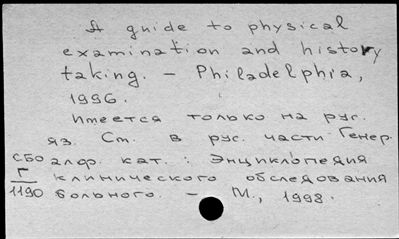 A guide to physical
examination and history
taking. – Philadelphia,
1996.
Имеется только на рус.
яз. См. в рус. части Генер.
СБО алф. кат.: Энциклопедия
Г клинического обследования
1190 больного. – М., 1998.